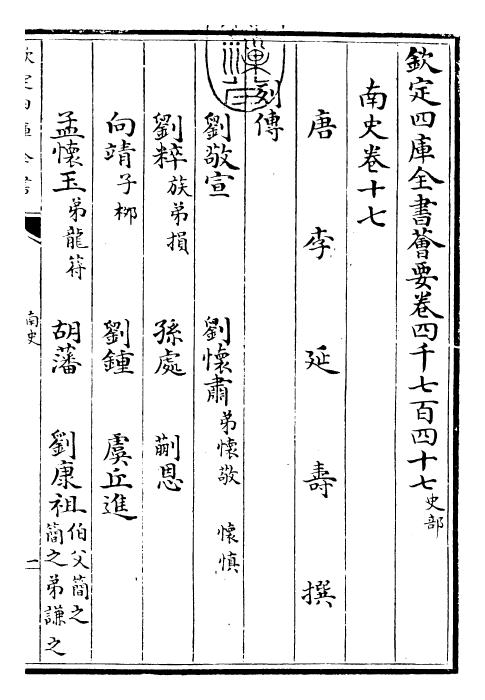 欽定四庫全書薈要卷四千七百四十七 史部
南史卷十七
唐 李 延 壽 撰
列傳
劉敬宣 劉懷肅 弟懷敬 懷慎
劉粹 族弟損 孫處 蒯恩
向靖 子柳 劉鍾 虞丘進
孟懷玉 弟龍符 胡藩 劉康祖 伯父簡之 簡之弟謙之
南史
一